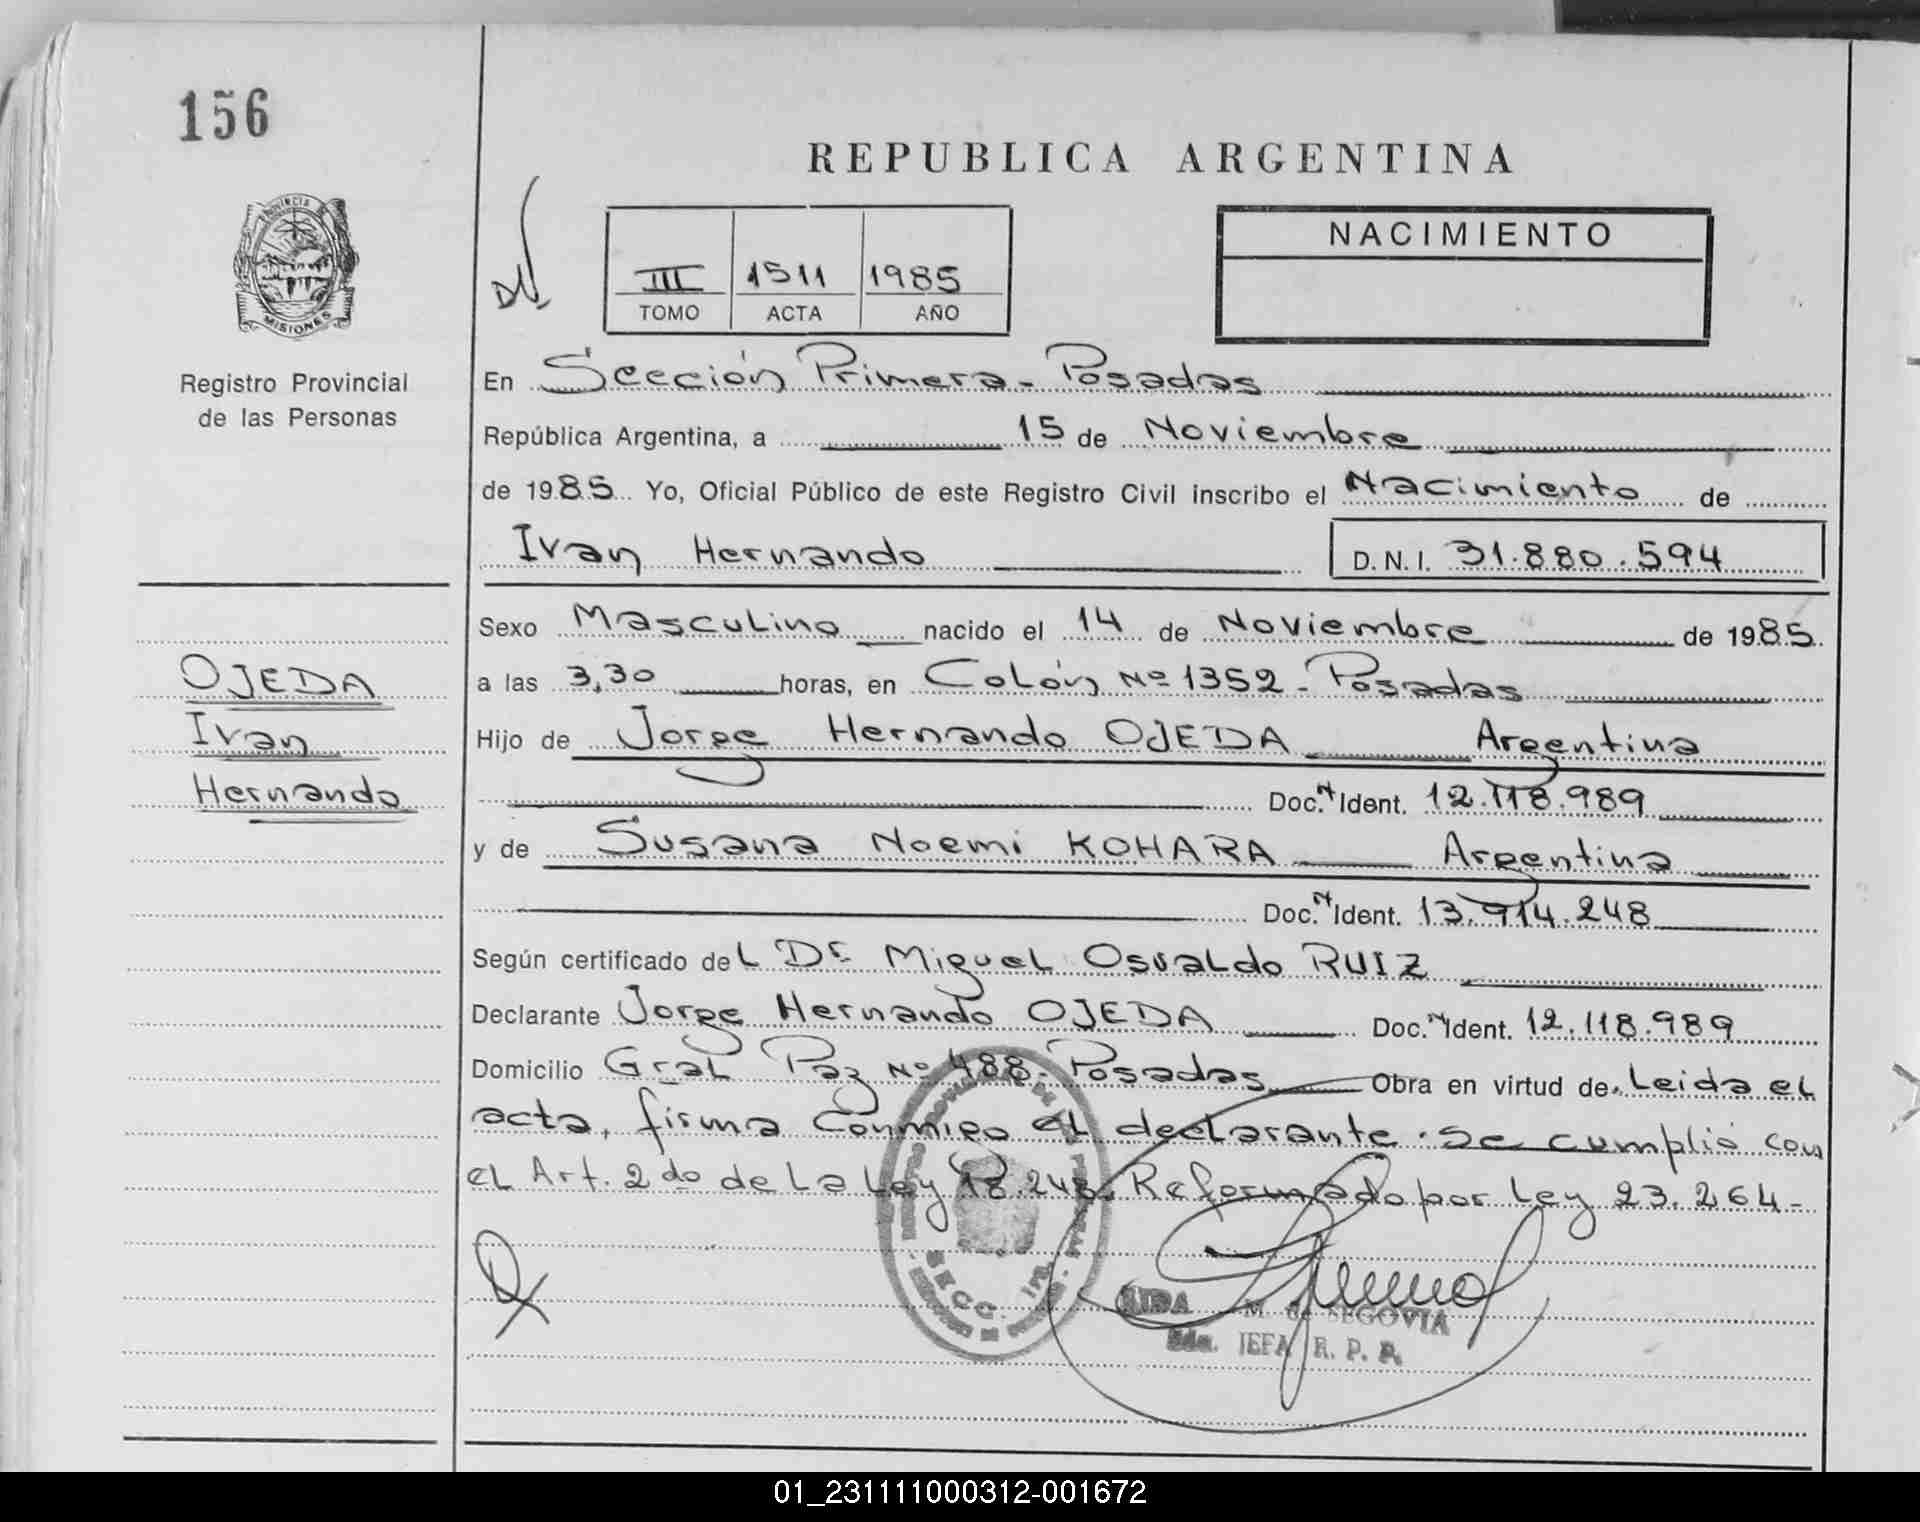 156
REPUBLICA ARGENTINA
III 1511 1985
TOMO ACTA AÑO
NACIMIENTO
PROVINCIA DE
MISIONES
Registro Provincial
de las Personas
En Sección Primera - Posadas
República Argentina, a 15 de Noviembre
de 1985 Yo, Oficial Público de este Registro Civil inscribo el Nacimiento de
Ivan Hernando D.N.I. 31.880.594
Sexo Masculino nacido el 14 de Noviembre de 1985
a las 3,30 horas, en Colón Nº 1352 - Posadas
OJEDA
Ivan
Hernando
Hijo de Jorge Hernando OJEDA Argentina
Doc. N Ident. 12.118.989
y de Susana Noemi KOHARA Argentina
Doc. N Ident. 13.914.248
Según certificado del Dr. Miguel Osvaldo RUIZ
Declarante Jorge Hernando OJEDA Doc. N Ident. 12.118.989
Domicilio Gral Paz Nº 488 - Posadas Obra en virtud de Leida el
acta, firma conmigo el declarante. Se cumplió con
el Art. 2do de la Ley 18.248. Reformado por Ley 23.264-
SECC. 1ra.
M. de SEGOVIA
2da. JEFA R. P. P.
01_231111000312-001672